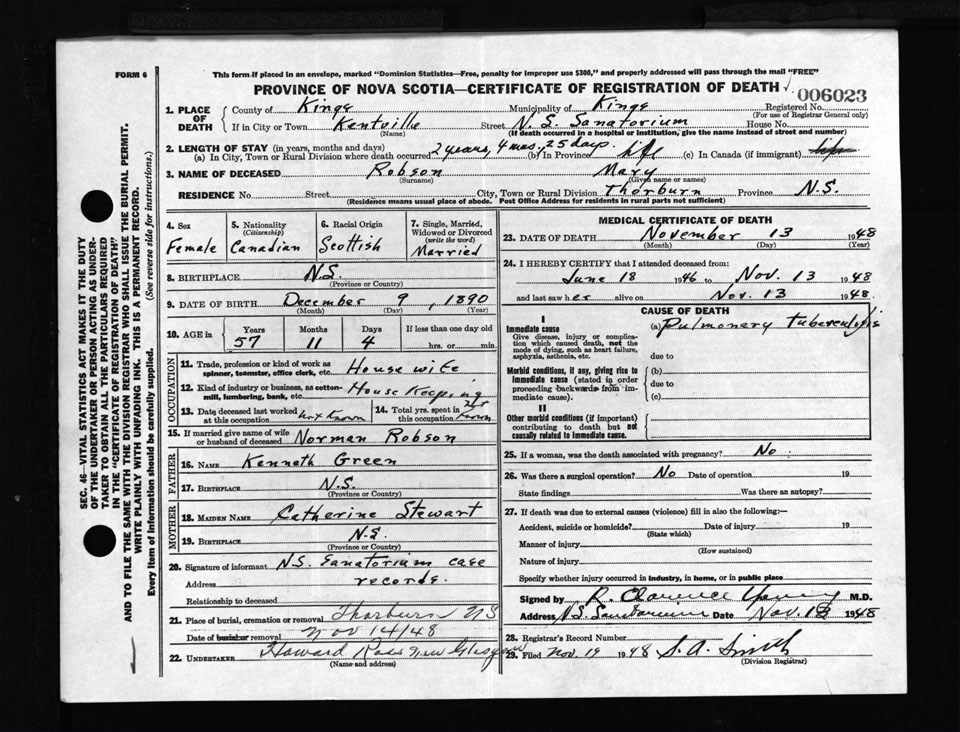 FORM 6
This form if placed in an envelope, marked "Dominion Statistics—Free, penalty for improper use $300," and properly addressed will pass through the mail "FREE"
PROVINCE OF NOVA SCOTIA—CERTIFICATE OF REGISTRATION OF DEATH
006023
1. PLACE OF DEATH County of Kings Municipality of Kings Registered No.
(For use of Registrar General only)
If in City or Town Kentville Street N. S. Sanatorium House No.
(Name) (If death occurred in a hospital or institution, give the name instead of street and number)
2. LENGTH OF STAY (in years, months and days)
(a) In City, Town or Rural Division where death occurred 2 years, 4 mos., 25 days. (b) In Province life (c) In Canada (if immigrant) life
3. NAME OF DECEASED Robson Mary
(Surname) (Given name or names)
RESIDENCE No. Street City, Town or Rural Division Thorburn Province N.S.
(Residence means usual place of abode. Post Office Address for residents in rural parts not sufficient)
4. Sex Female
5. Nationality (Citizenship) Canadian
6. Racial Origin Scottish
7. Single, Married, Widowed or Divorced (write the word) Married
8. BIRTHPLACE N.S.
(Province or Country)
9. DATE OF BIRTH December 9, 1890
(Month) (Day) (Year)
10. AGE in Years 57 Months 11 Days 4 If less than one day old hrs. or min.
OCCUPATION
11. Trade, profession or kind of work as spinner, teamster, office clerk, etc. Housewife
12. Kind of industry or business, as cotton-mill, lumbering, bank, etc. House Keeping
13. Date deceased last worked at this occupation not known
14. Total yrs. spent in this occupation not known
15. If married give name of wife or husband of deceased Norman Robson
FATHER
16. NAME Kenneth Green
17. BIRTHPLACE N.S.
(Province or Country)
MOTHER
18. MAIDEN NAME Catherine Stewart
19. BIRTHPLACE N.S.
(Province or Country)
20. Signature of informant N.S. Sanatorium case
Address records.
Relationship to deceased
21. Place of burial, cremation or removal Thorburn NS
Date of burial or removal Nov 14/48
22. UNDERTAKER Howard Ross New Glasgow
(Name and address)
MEDICAL CERTIFICATE OF DEATH
23. DATE OF DEATH November 13 1948
(Month) (Day) (Year)
24. I HEREBY CERTIFY that I attended deceased from:
June 18 1946 to Nov. 13 1948
and last saw her alive on Nov. 13 1948.
CAUSE OF DEATH
I
Immediate cause
Give disease, injury or complication which caused death, not the mode of dying, such as heart failure, asphyxia, asthenia, etc.
(a) Pulmonary tuberculosis
due to
Morbid conditions, if any, giving rise to immediate cause (stated in order proceeding backwards from immediate cause).
(b)
due to
(c)
II
Other morbid conditions (if important) contributing to death but not causally related to immediate cause.
25. If a woman, was the death associated with pregnancy? No.
26. Was there a surgical operation? No Date of operation 19
State findings Was there an autopsy?
27. If death was due to external causes (violence) fill in also the following:—
Accident, suicide or homicide? Date of injury 19
(State which)
Manner of injury
(How sustained)
Nature of injury
Specify whether injury occurred in industry, in home, or in public place
Signed by R. Clarence Young M.D.
Address N.S. Sanatorium Date Nov. 13 1948
28. Registrar's Record Number
29. Filed Nov. 19 1948 S. A. Smith
(Division Registrar)
SEC. 46—VITAL STATISTICS ACT MAKES IT THE DUTY
OF THE UNDERTAKER OR PERSON ACTING AS UNDER-
TAKER TO OBTAIN ALL THE PARTICULARS REQUIRED
IN THE "CERTIFICATE OF REGISTRATION OF DEATH"
AND TO FILE THE SAME WITH THE DIVISION REGISTRAR WHO SHALL ISSUE THE BURIAL PERMIT.
WRITE PLAINLY WITH UNFADING INK. THIS IS A PERMANENT RECORD.
Every item of information should be carefully supplied. (See reverse side for instructions.)